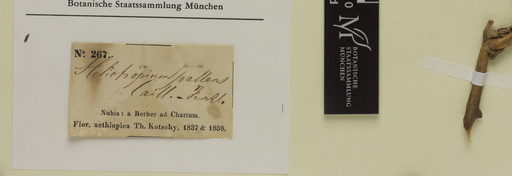 Botanische Staatssammlung München
No 267.
Heliotropium pallens
Caill.
Nubia: a Berber ad Chartum.
Flor. aethiopica Th. Kotschy. 1837 & 1838.
BOTANISCHE
STAATSSAMMLUNG
MÜNCHEN